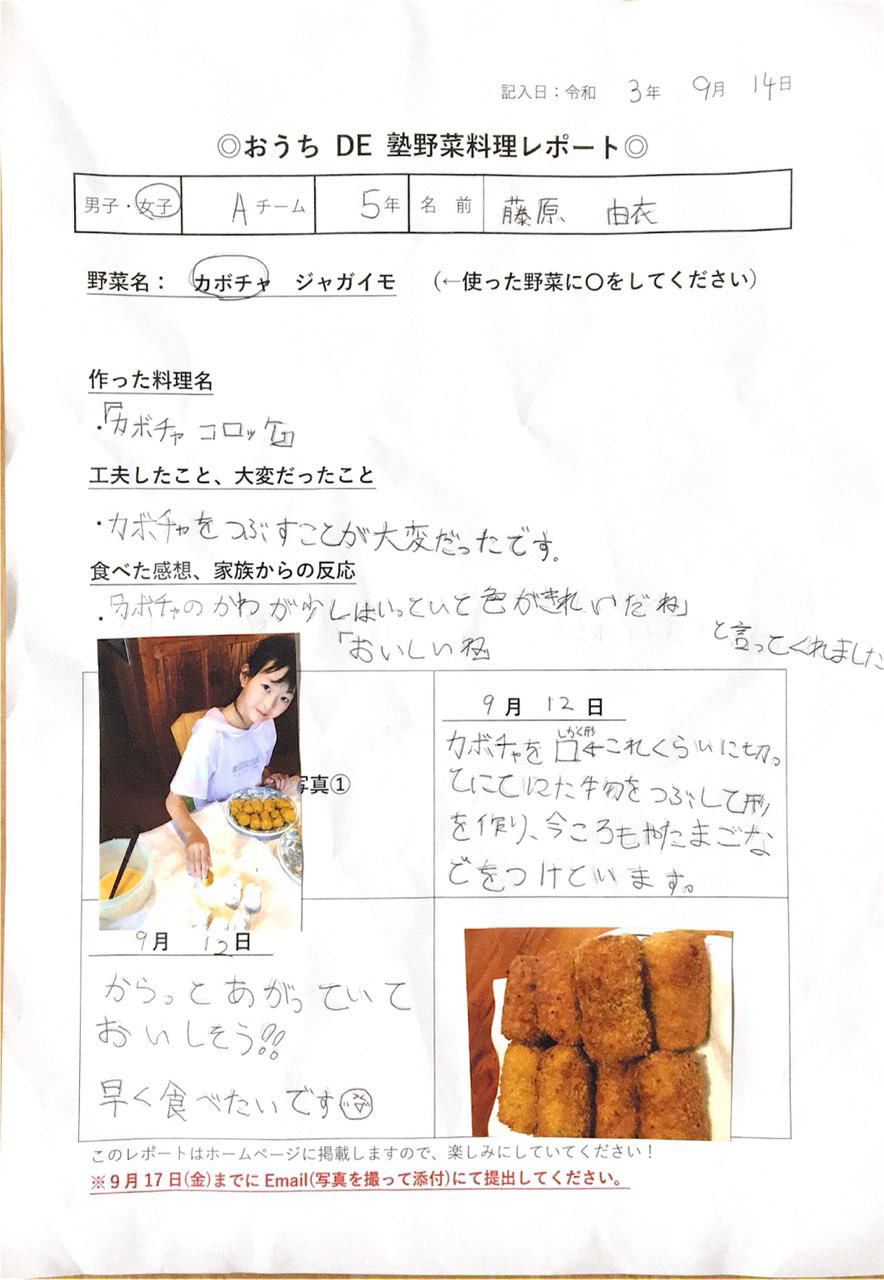 記入日：令和 3年 9月 14日
◎おうち DE 塾野菜料理レポート◎
男子・女子 Aチーム 5年 名 前 藤原 由衣
野菜名： カボチャ ジャガイモ （←使った野菜に〇をしてください）
作った料理名
・『カボチャ コロッケ』
工夫したこと、大変だったこと
・カボチャをつぶすことが大変だったです。
食べた感想、家族からの反応
・「カボチャのかわが少しはいっといと色がきれいだね」
「おいしいね」 と言ってくれました
写真①
9月 12日
しかく形
カボチャを 口←これくらいに切っ
てにてにた物をつぶして形
を作り、今ころもやたまごな
どをつけています。
9月 12日
からっとあがっていて
おいしそう!!
早く食べたいです
このレポートはホームページに掲載しますので、楽しみにしていてください！
※9月17日(金)までにEmail(写真を撮って添付)にて提出してください。